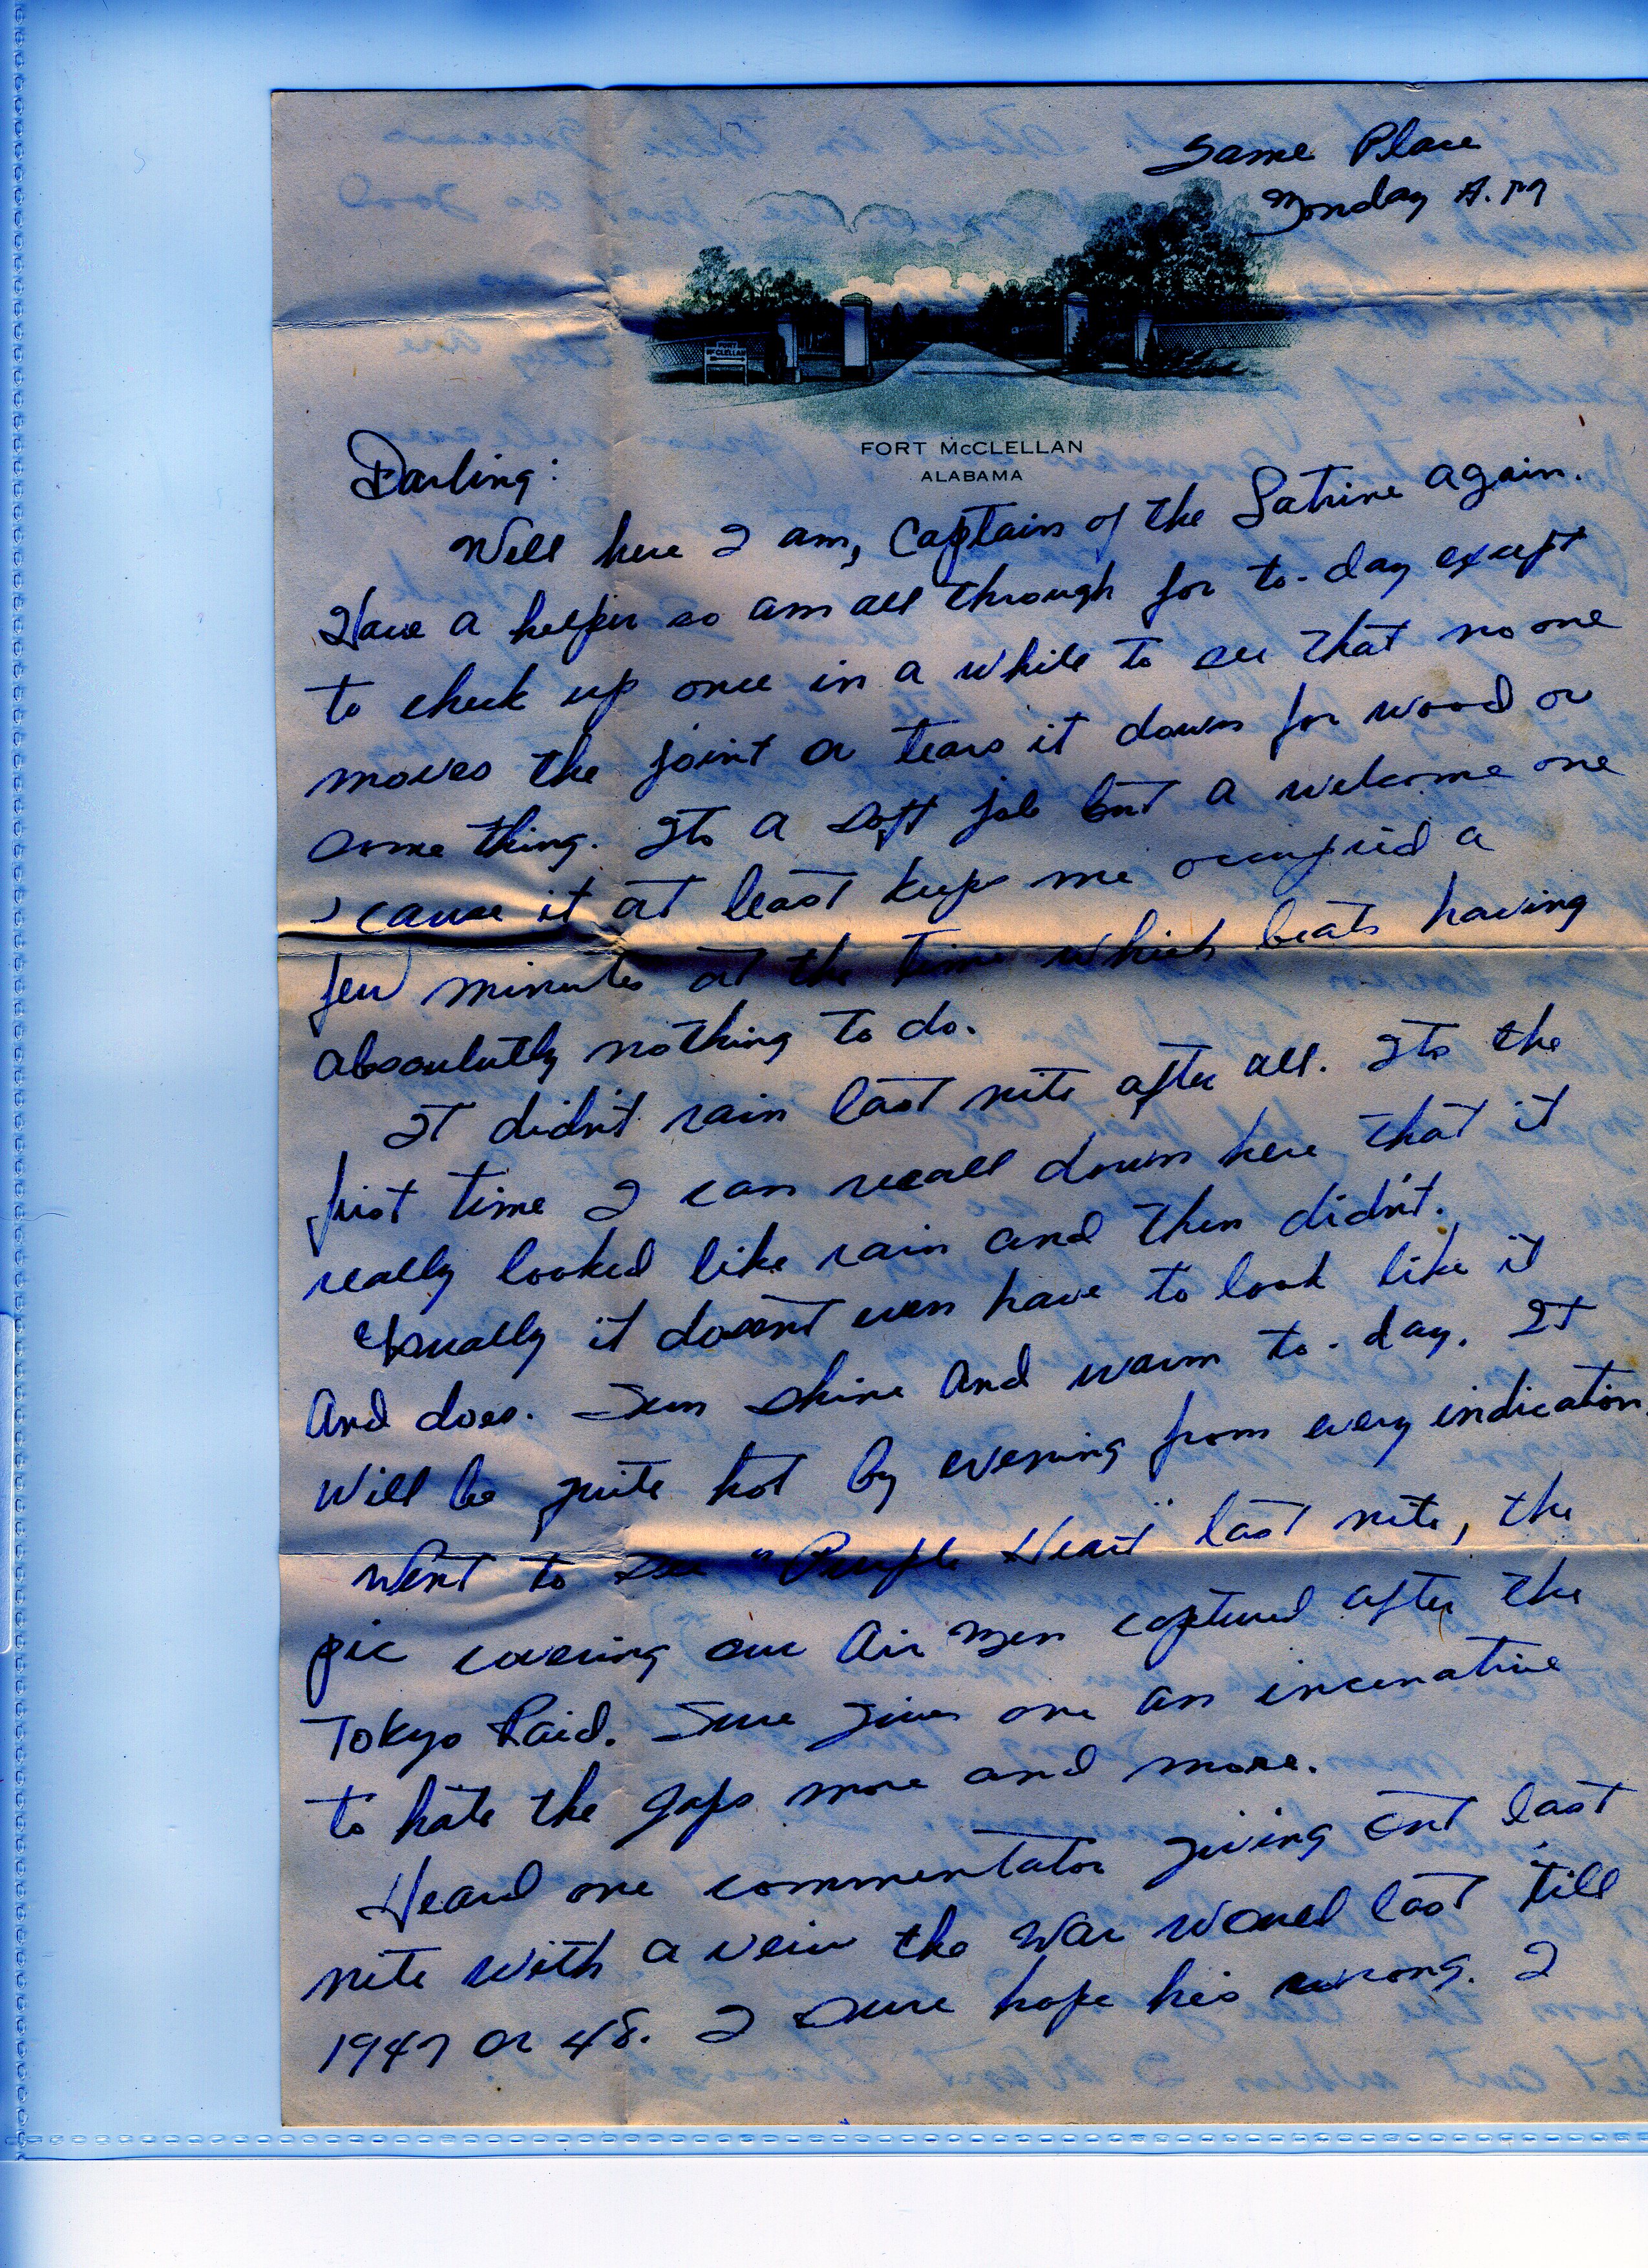 Same Place
Monday A.M
FORT McCLELLAN
ALABAMA
Darling:
Well here I am, Captain of the Latrine again.
Have a helper so am all through for to-day except
to check up once in a while to see that no one
moves the joint or tears it down for wood or
some thing. Its a soft job but a welcome one
'cause it at least keeps me occupied a
few minutes at the time which beats having
absoulutly nothing to do.
It didn't rain last nite after all. Its the
first time I can recall down here that it
really looked like rain and then didn't.
Usually it doesnt even have to look like it
and does. Sun shine and warm to-day. It
will be quite hot by evening from every indication.
Went to see "Purple Heart" last nite, the
pic covering our Air Men captured after the
Tokyo Raid. Sure gives one an incenative
to hate the Japs more and more.
Heard one commentator giving out last
nite with a veiw the War would last till
1947 or 48. I sure hope his wrong. I